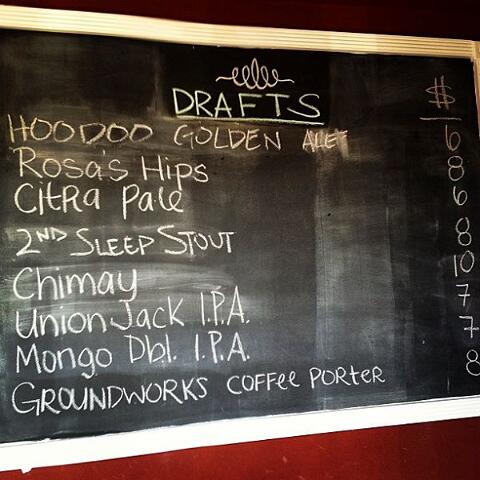 DRAFTS $
HOODOO GOLDEN 6
Rosa's Hips 8
Citra Pale 6
2ND SLEEP STOUT 8
Chimay 10
Union Jack I.P.A. 7
Mongo Dbl. I.P.A. 7
GROUNDWORKS COFFEE PORTER 8